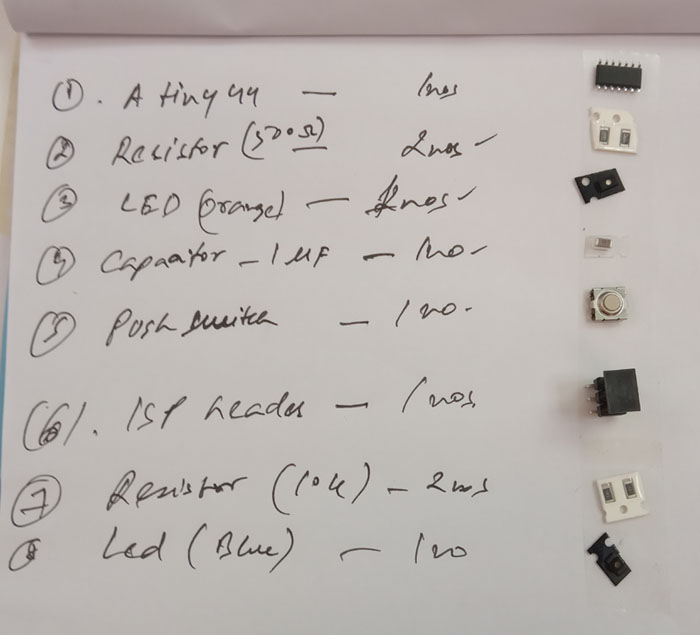 ① . Atiny44 — 1nos
② Resistor (500Ω) 2nos ✓
③ LED (orange) — 1nos ✓
④ Capacitor – 1 µF – 1no ✓
⑤ Push switch – 1 no.
(6). ISP header – 1 nos
⑦ Resistor (10k) – 2nos
⑧ Led (Blue) – 1no